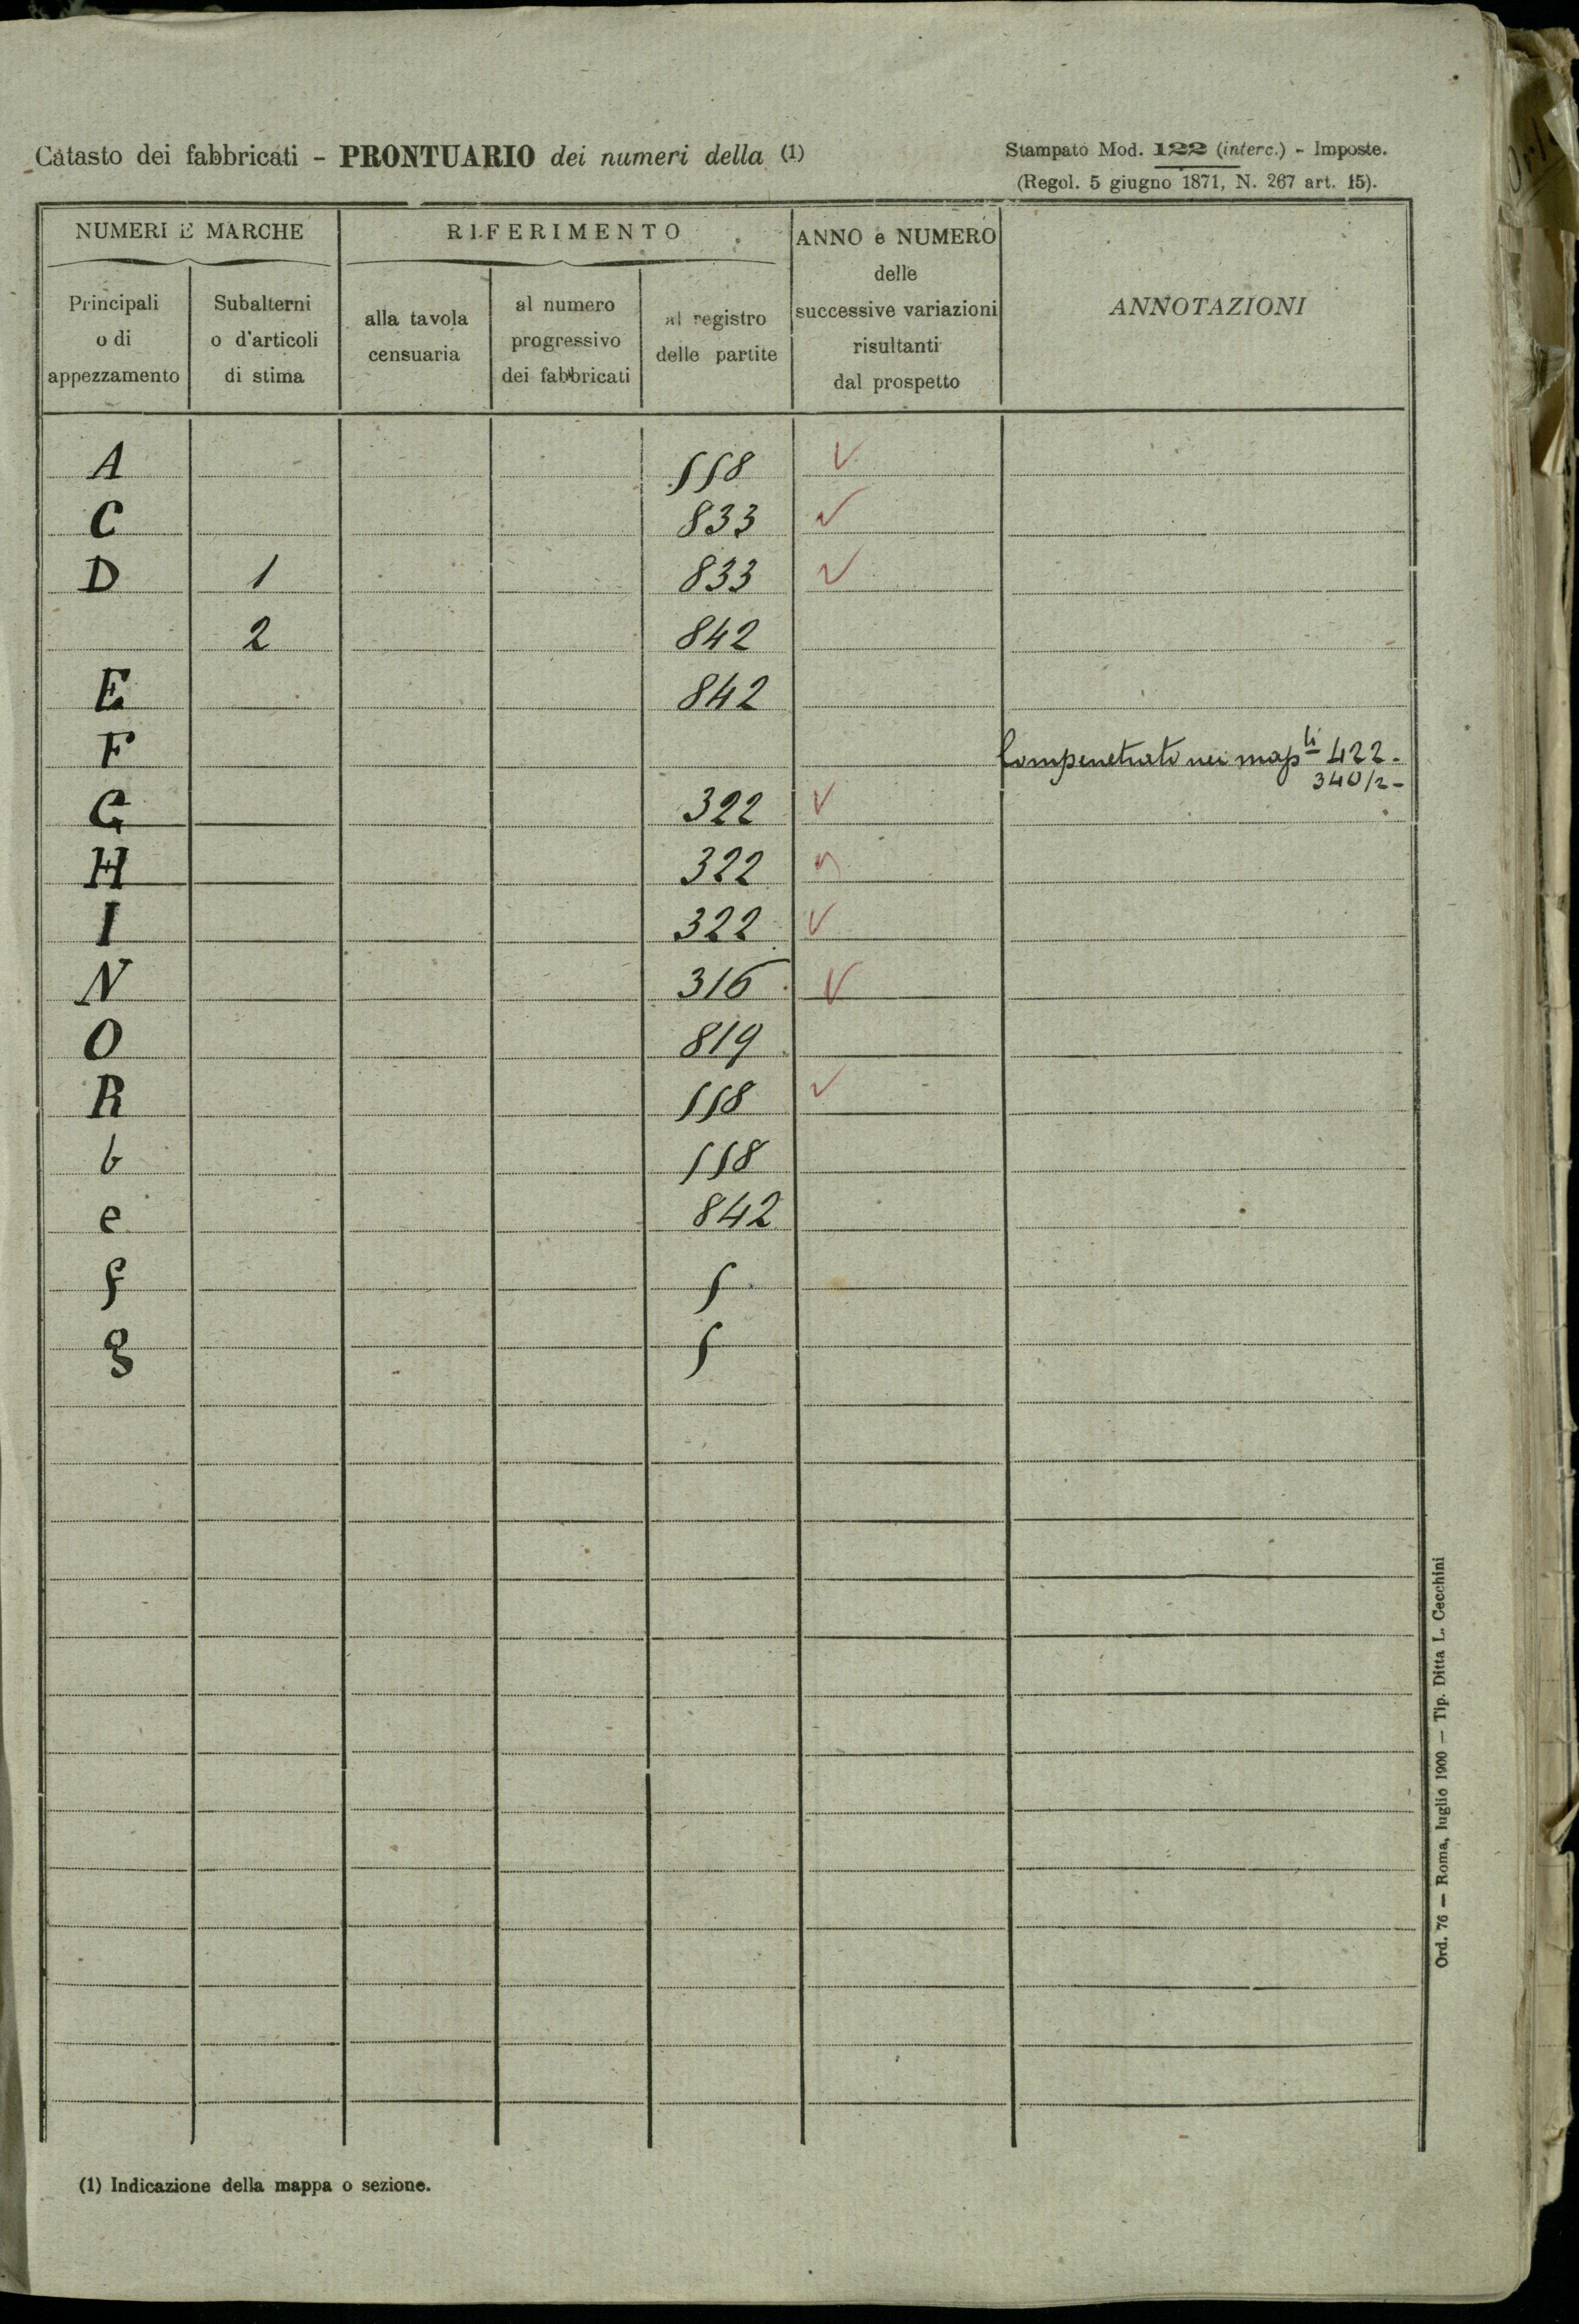 Catasto dei fabbricati - PRONTUARIO dei numeri della (1)
Stampato Mod. 122 (interc.) - Imposte.
(Regol. 5 giugno 1871, N. 267 art. 15).
NUMERI E MARCHE
RIFERIMENTO
ANNO e NUMERO
delle
successive variazioni
risultanti
dal prospetto
ANNOTAZIONI
Principali
o di
appezzamento
Subalterni
o d'articoli
di stima
alla tavola
censuaria
al numero
progressivo
dei fabbricati
al registro
delle partite
A 558 ✓
C 833 ✓
D 1 833 ✓
2 842
E 842
F Compenetrato nei mapli 422 -
340/2 -
G 322 ✓
H 322 ✓
I 322 ✓
N 316 ✓
O 819
R 558 ✓
b 558
e 842
f 5
g 5
(1) Indicazione della mappa o sezione.
Ord. 76 — Roma, luglio 1900 — Tip. Ditta L. Cecchini